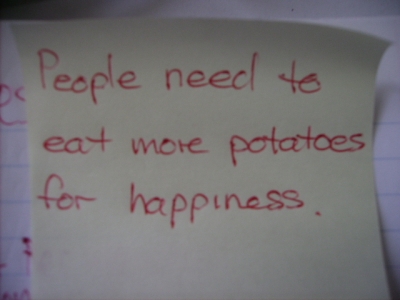 People need to
eat more potatoes
for happiness.